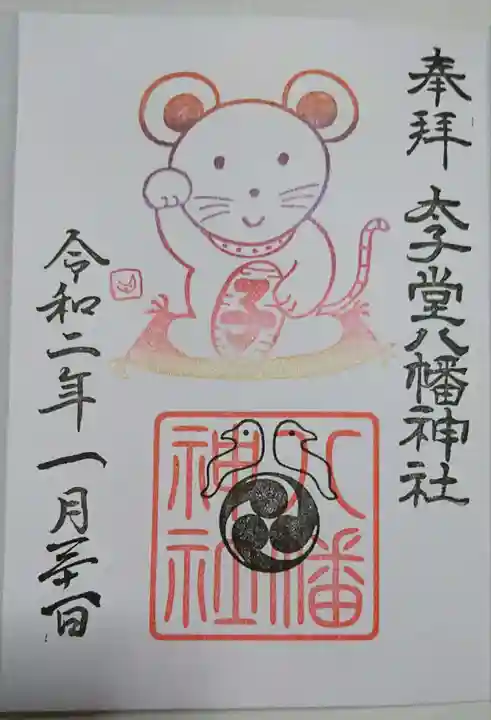 奉拝 太子堂八幡神社
八幡
神社
令和二年 一月三十一日